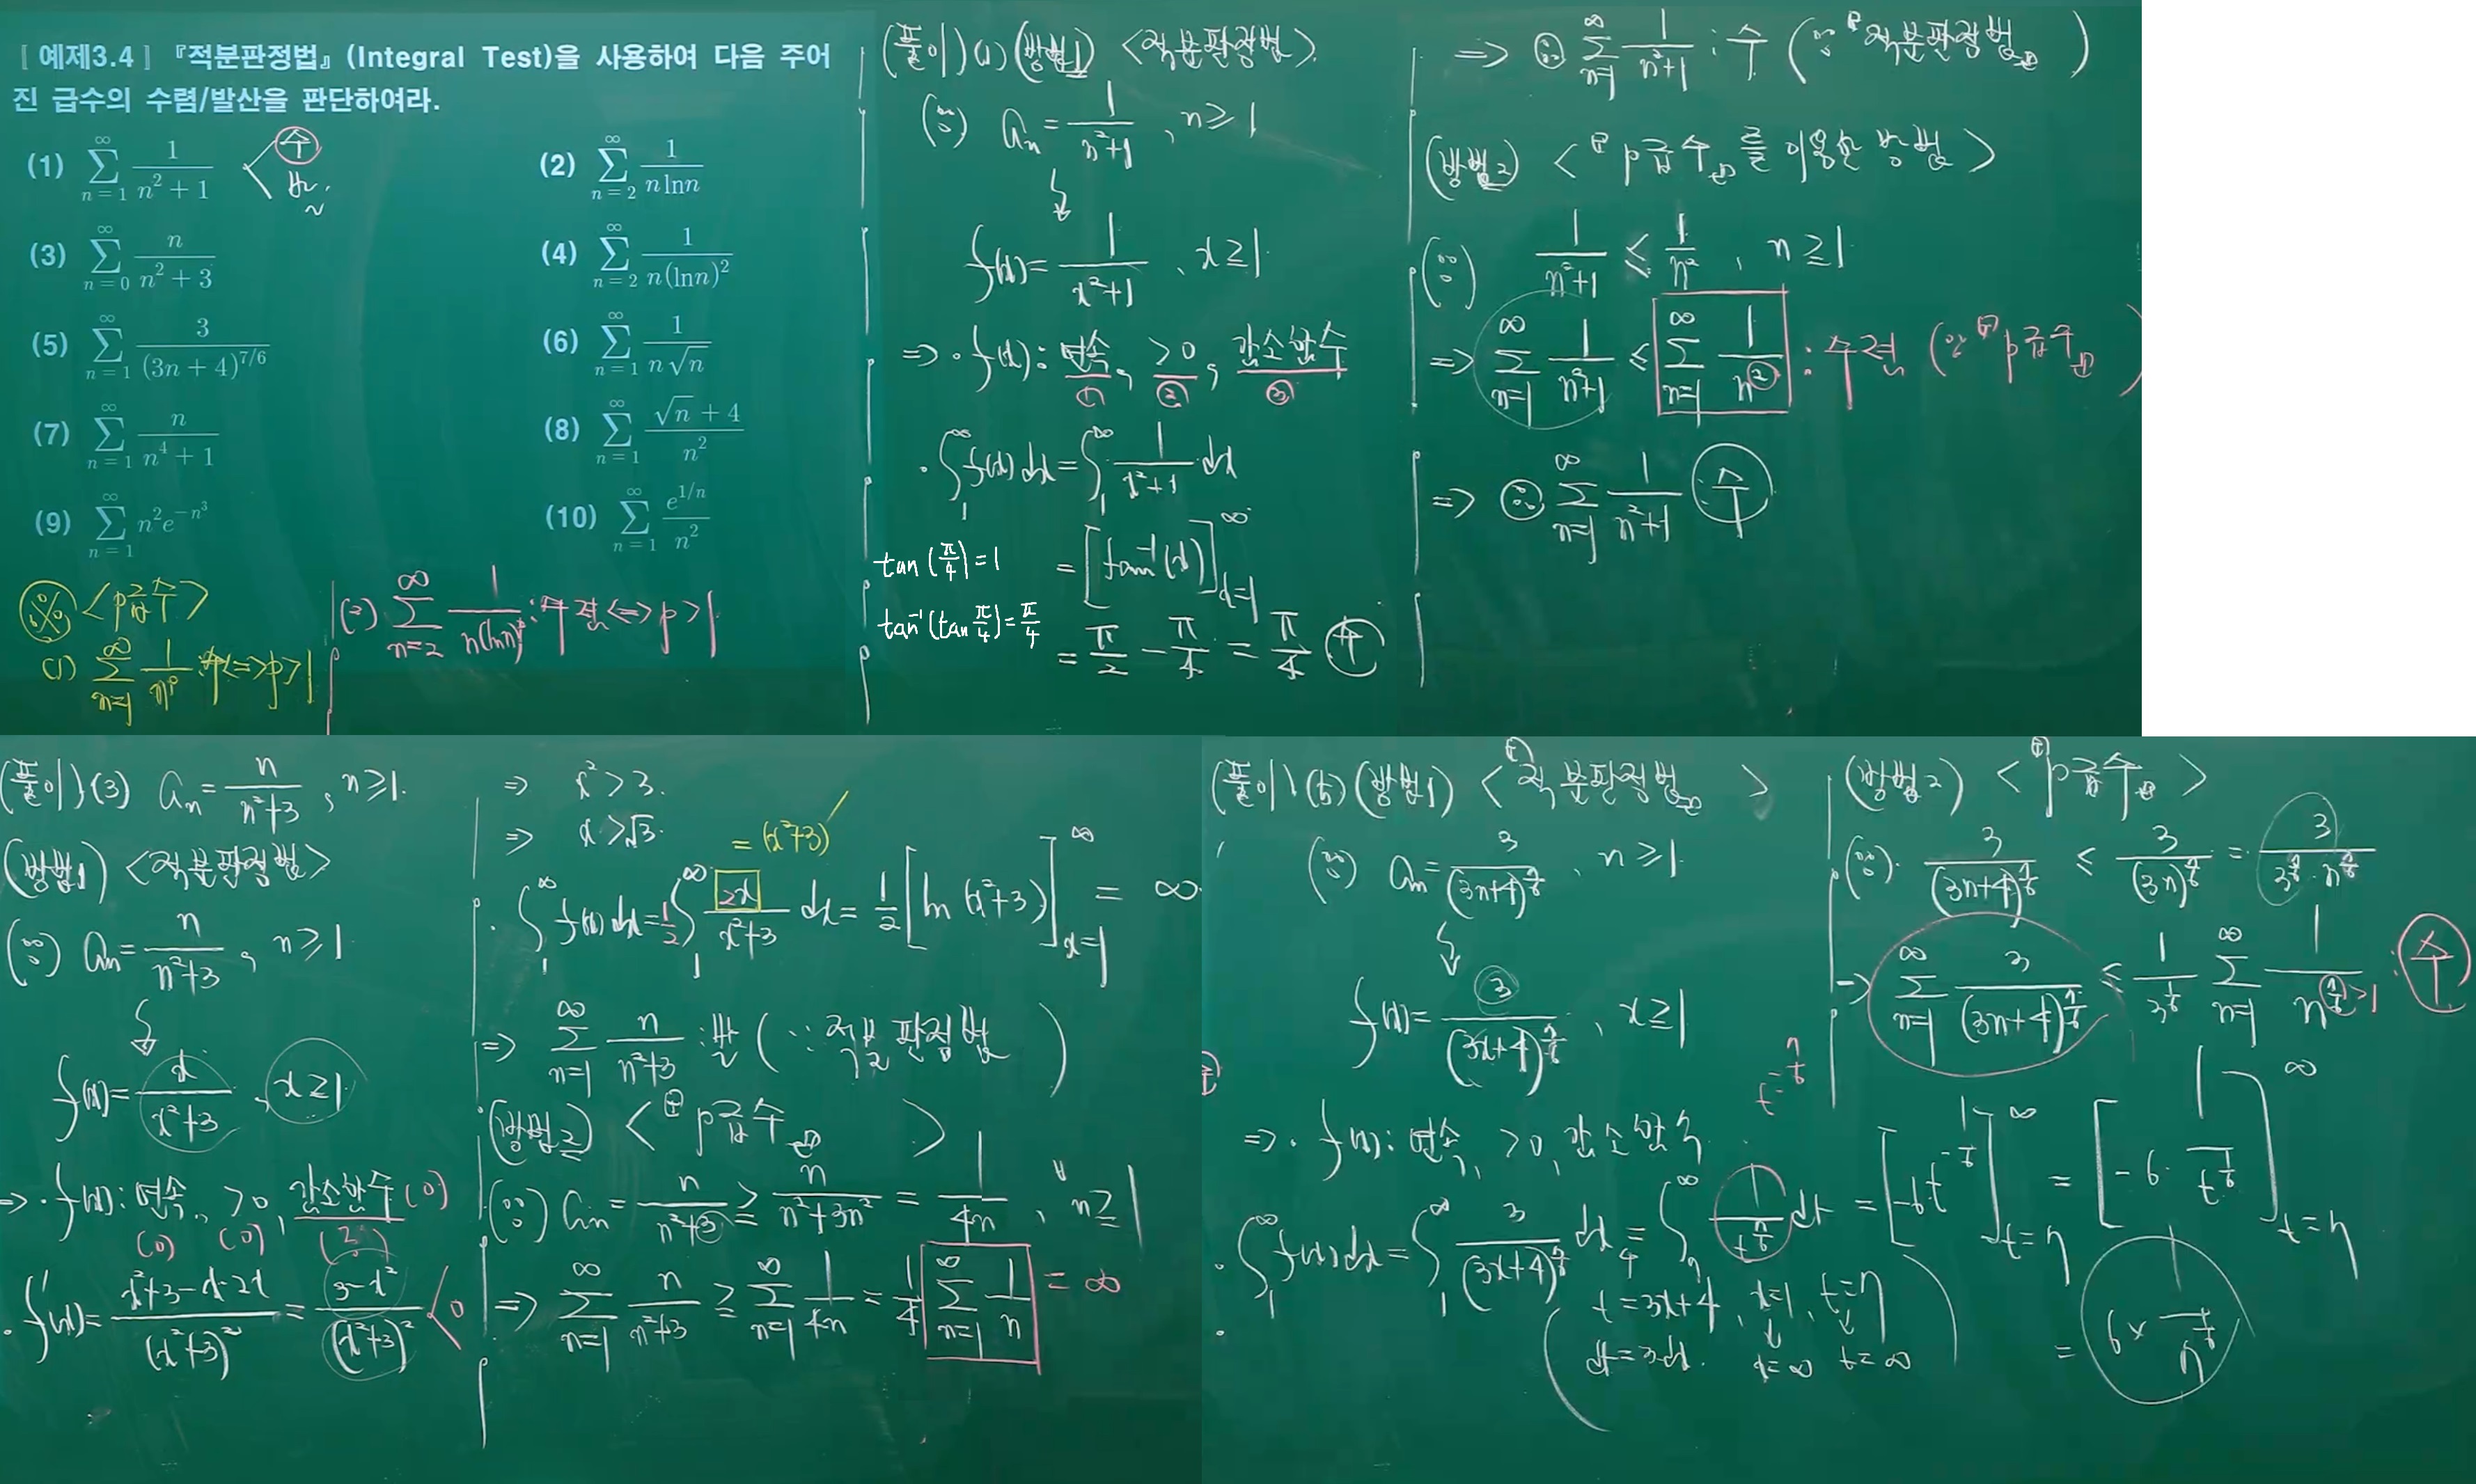 [ 예제3.4 ] 『적분판정법』(Integral Test)을 사용하여 다음 주어
진 급수의 수렴/발산을 판단하여라.
(1) ∑_{n=1}^{∞} 1/(n²+1) < 수 발
(2) ∑_{n=2}^{∞} 1/(n ln n)
(3) ∑_{n=0}^{∞} n/(n²+3)
(4) ∑_{n=2}^{∞} 1/(n(ln n)²)
(5) ∑_{n=1}^{∞} 3/(3n+4)^{7/6}
(6) ∑_{n=1}^{∞} 1/(n√n)
(7) ∑_{n=1}^{∞} n/(n⁴+1)
(8) ∑_{n=1}^{∞} (√n+4)/n²
(9) ∑_{n=1}^{∞} n²e^{-n³}
(10) ∑_{n=1}^{∞} e^{1/n}/n²
※ <p급수>
(1) ∑_{n=1}^{∞} 1/n^p : 수 <=> p>1
(2) ∑_{n=2}^{∞} 1/(n(ln n)^p) : 수렴 <=> p>1
(풀이)(1)(방법1) <적분판정법>
(∵) a_n = 1/(n²+1), n≥1
f(x) = 1/(x²+1), x≥1
=> · f(x): 연속, >0, 감소함수
① ② ③
· ∫_1^∞ f(x)dx = ∫_1^∞ 1/(x²+1) dx
= [tan⁻¹(x)]_{x=1}^{∞}
tan(π/4)=1
tan⁻¹(tan π/4)=π/4
= π/2 - π/4 = π/4 수
=> ∴ ∑_{n=1}^{∞} 1/(n²+1) : 수 (∵『적분판정법』)
(방법2) <『p급수』를 이용한 방법>
(∵) 1/(n²+1) ≤ 1/n², n≥1
=> ∑_{n=1}^{∞} 1/(n²+1) ≤ ∑_{n=1}^{∞} 1/n² : 수렴 (∵『p급수』)
=> ∴ ∑_{n=1}^{∞} 1/(n²+1) 수
(풀이)(3) a_n = n/(n²+3), n≥1.
(방법1) <적분판정법>
(∵) a_n = n/(n²+3), n≥1
f(x) = x/(x²+3), x≥1
=> · f(x): 연속, >0, 감소함수(0)
(0) (0) (?)
· f'(x) = (x²+3-x·2x)/(x²+3)² = (3-x²)/(x²+3)² < 0
=> x²>3.
=> x>√3.
= (x²+3)'
· ∫_1^∞ f(x)dx = 1/2 ∫_1^∞ 2x/(x²+3) dx = 1/2 [ln(x²+3)]_{x=1}^{∞} = ∞
=> ∑_{n=1}^{∞} n/(n²+3) : 발 (∵ 적분판정법)
(방법2) <『p급수』>
(∵) a_n = n/(n²+3) ≥ n/(n²+3n²) = 1/(4n), ∀n≥1
=> ∑_{n=1}^{∞} n/(n²+3) ≥ ∑_{n=1}^{∞} 1/(4n) = 1/4 ∑_{n=1}^{∞} 1/n = ∞
(풀이)(5)(방법1) <『적분판정법』>
(∵) a_n = 3/(3n+4)^{7/6}, n≥1
f(x) = 3/(3x+4)^{7/6}, x≥1
t^{-7/6}
=> · f(x): 연속, >0, 감소함수
· ∫_1^∞ f(x)dx = ∫_1^∞ 3/(3x+4)^{7/6} dx = ∫_7^∞ 1/t^{7/6} dt = [-6t^{-1/6}]_{t=7}^{∞} = [-6·1/t^{1/6}]_{t=7}^{∞}
(t=3x+4, x=1, t=7
dt=3dx. x=∞ t=∞)
= 6×1/7^{1/6}
(방법2) <『p급수』>
(∵) 3/(3n+4)^{7/6} ≤ 3/(3n)^{7/6} = 3/(3^{7/6}·n^{7/6})
=> ∑_{n=1}^{∞} 3/(3n+4)^{7/6} ≤ 1/3^{1/6} ∑_{n=1}^{∞} 1/n^{7/6>1} : 수